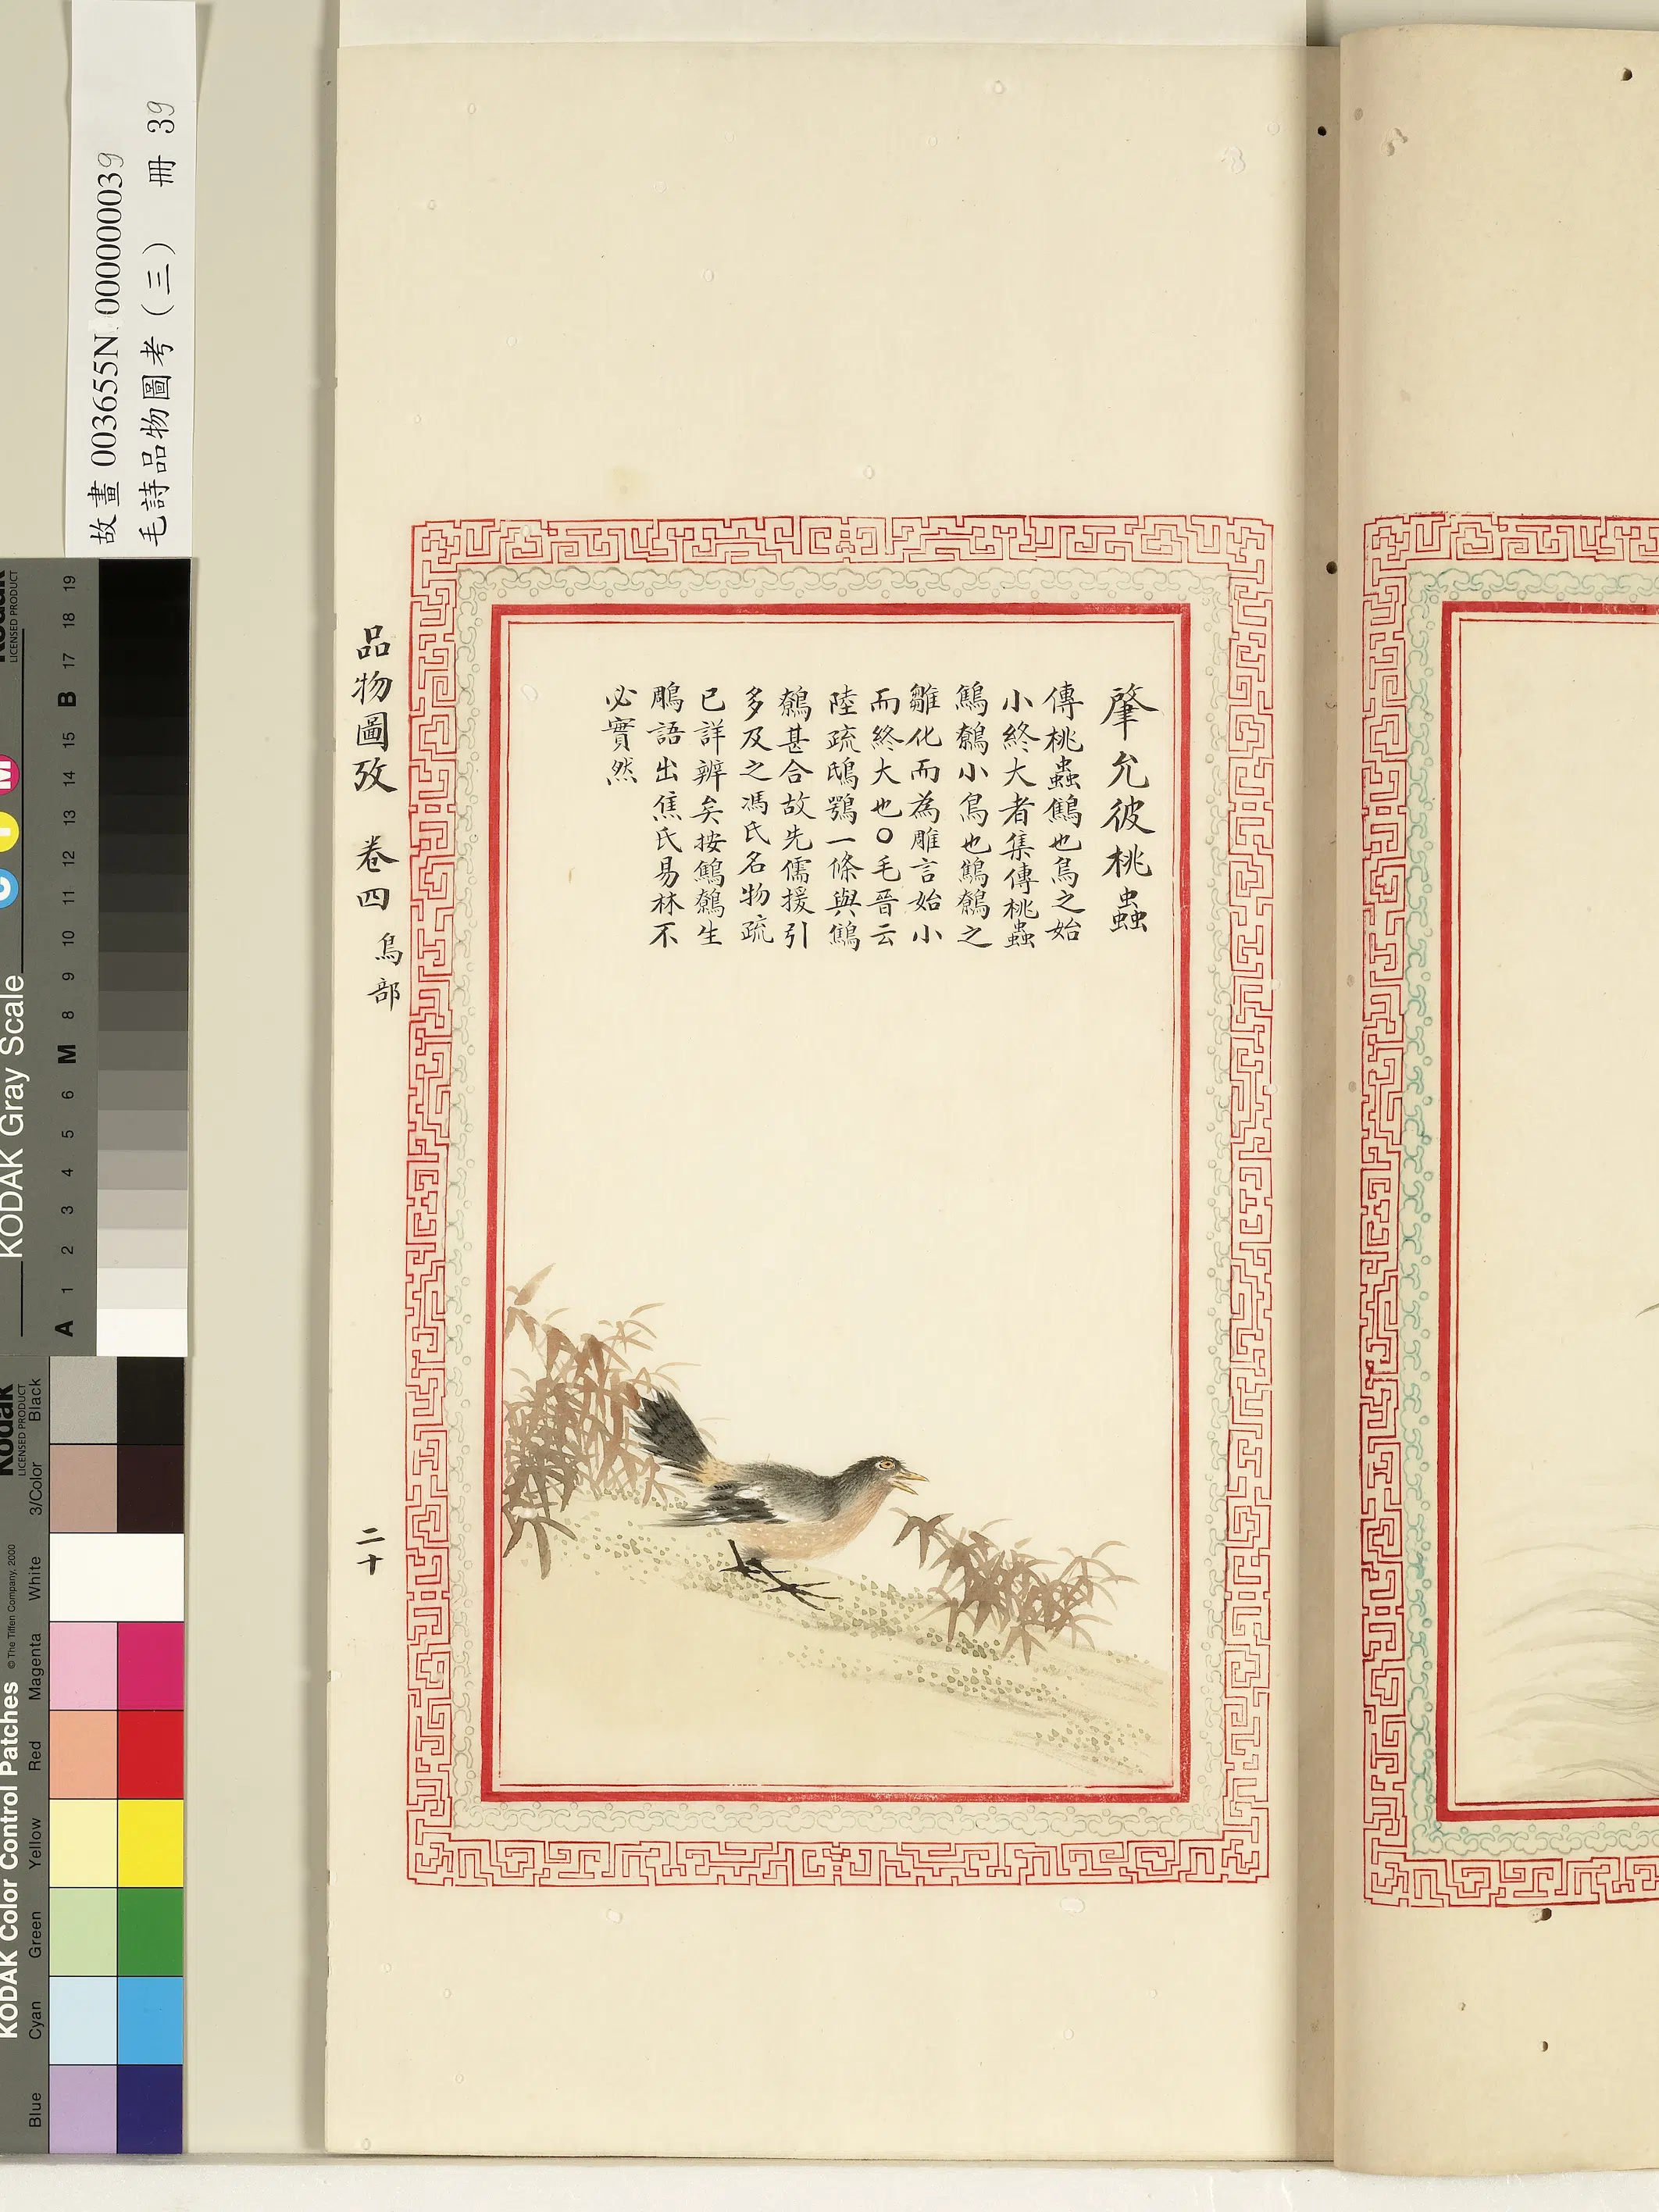 肇允彼桃蟲
傳桃蟲鷦也鳥之始
小終大者集傳桃蟲
鷦鷯小鳥也鷦鷯之
雛化而為雕言始小
而終大也○毛晉云
陸疏鴟鴞一條與鷦
鷯甚合故先儒援引
多及之馮氏名物疏
已詳辨矣按鷦鷯生
鵰語出焦氏易林不
必實然
品物圖攷 卷四 鳥部
二十
故畫 003655N 000000039
毛詩品物圖考（三） 冊 39
Kodak
LICENSED PRODUCT
KODAK Gray Scale
C Y M
A 1 2 3 4 5 6 M 8 9 10 11 12 13 14 15 B 17 18 19
Kodak
LICENSED PRODUCT
KODAK Color Control Patches © The Tiffen Company, 2000
Blue Cyan Green Yellow Red Magenta White 3/Color Black